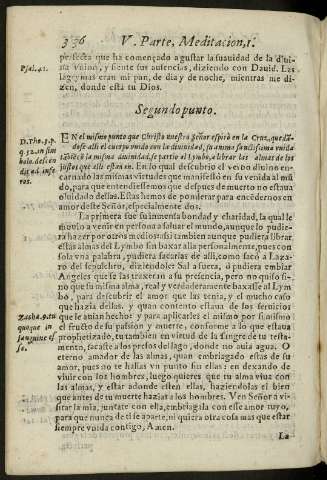 336 V. Parte, Meditacion, 1.
Psal. 41.
perfecta que ha començado a gustar la suauidad de la diui-
na vnion, y siente sus ausencias, diziendo con Dauid. Las
lagrymas eran mi pan, de dia y de noche, mientras me di-
zen, donde está tu Dios.
Segundo punto.
D. Tho. 3. p.
q. 52. in sim
bolo. descen
dit ad infe-
ros.
EN el mismo punto que Christo nuestro Señor espiró en la Cruz, quedã-
dose alli el cuerpo vnido con la diuinidad, su anima sanctissima vnida
tãbien cõ la misma diuinidad, se partio al Lymbo, a librar las almas de los
justos que alli estauan. En lo qual descubrio el verbo diuino en-
carnado las mismas virtudes que manifestó en su venida al mũ
do, para que entendiessemos que despues de muerto no estaua
oluidado dellas. Estas hemos de ponderar para encédernos en
amor deste Señor, especialmente dos.
La primera fue su inmensa bondad y charidad, la qual le
mouio a venir en persona a saluar el mundo, aunque lo pudie
ra hazer por otros medios: assi tambien aunque pudiera librar
estas almas del Lymbo sin baxar alla personalmente, pues con
sola vna palabra, pudiera sacarlas de alli, como sacó a Lazaro
del sepulchro, diziendole: Sal a fuera, ó pudiera embiar
Angeles que se las traxeran a su presencia, pero no quiso si-
no que su misma alma, real y verdaderamente baxasse al Lym
bo, para descubrir el amor que las tenia, y el mucho caso
que hazia dellas, y quan contento estaua de los seruicios
que le auian hecho: y para aplicarles el mismo por si mismo
el fructo de su passion y muerte, conforme a lo que estaua
prophetizado, tu tambien en virtud de la sangre de tu testa-
mento, sacaste a los presos del lago, donde no auia agua. O
eterno amador de las almas, quan embriagado estas de su
amor, pues no te hallas vn punto sin ellas: en dexando de
viuir con los hombres, luego quieres que tu alma viua con
las almas, y estar adonde esten ellas, haziendolas el bien
que antes de tu muerte haziat a los hombres. Ven Señor a vi-
sitar la mia, juntate con ella, embriagala con esse amor tuyo,
para que nunca de ti se aparte, ni quiera otra cosa mas que estar
siempre vnida contigo, Amen.
Zacha. 9. tu
quoque in
sanguine &c.
La